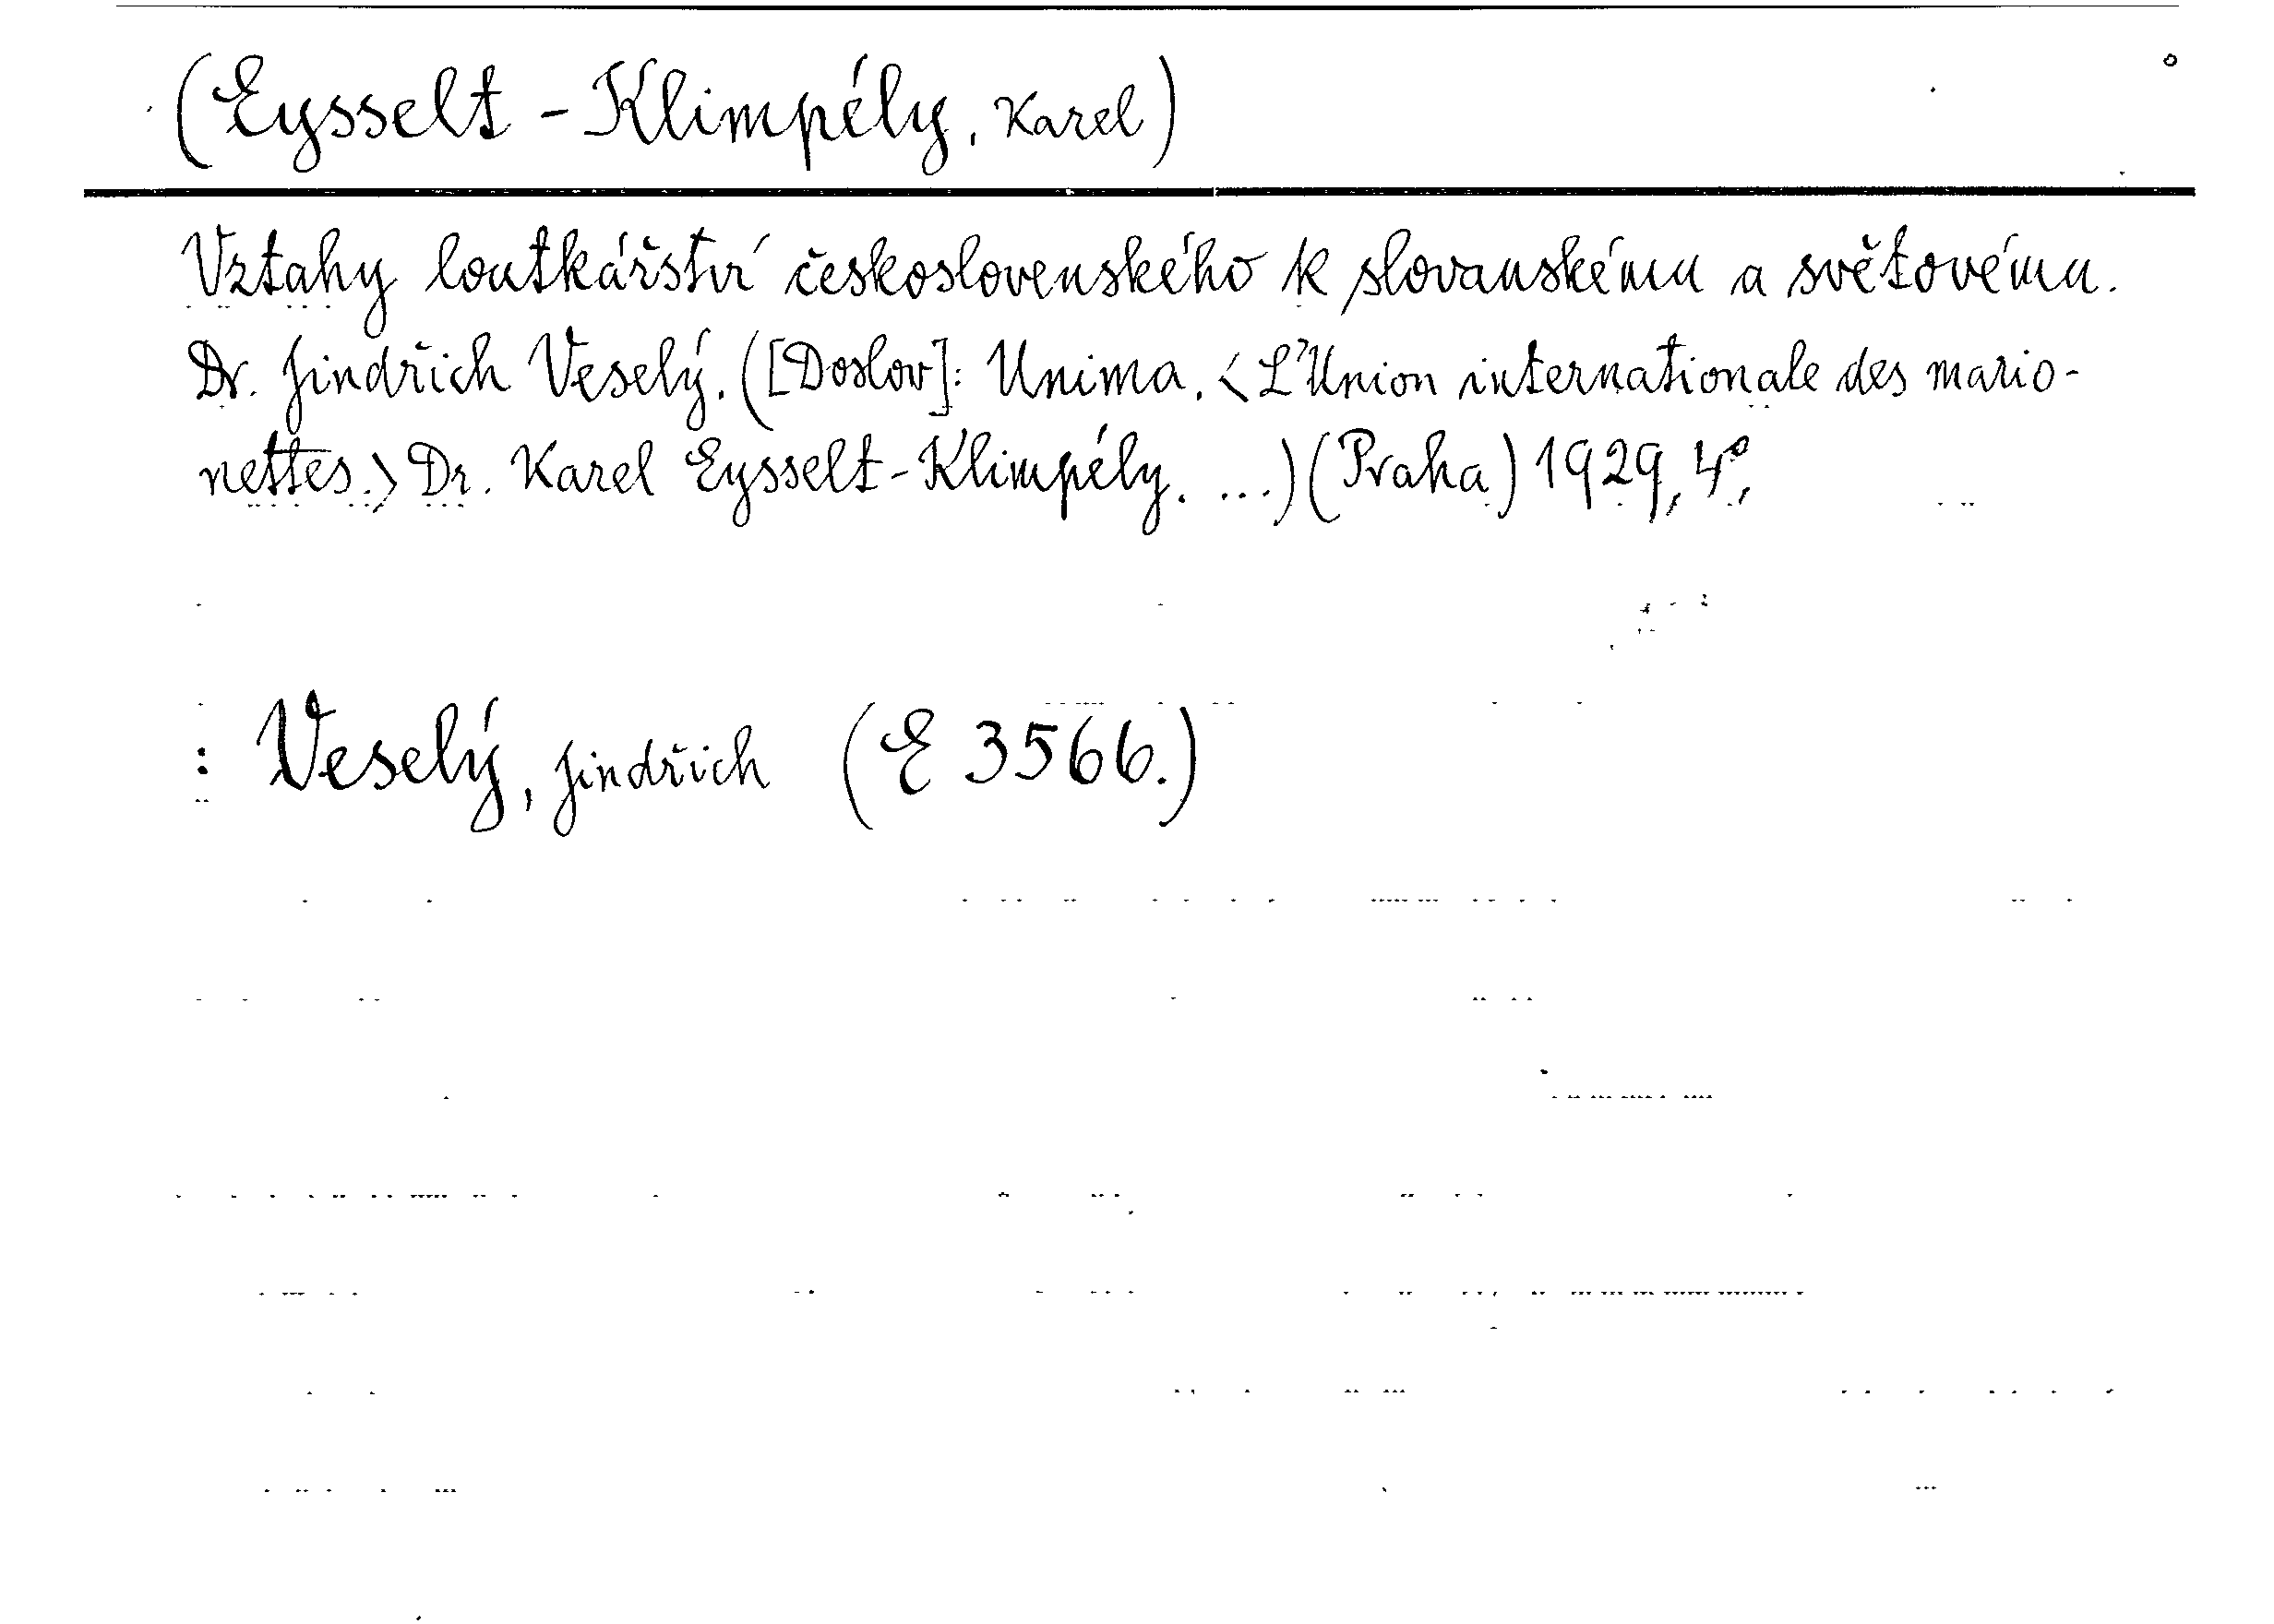 (Eysselt-Klimpély, Karel)
Vztahy loutkářství československého k slovanskému a světovému.
Dr. Jindřich Veselý. ([Doslov]: Unima. <L'Union internationale des mario-
nettes.> Dr. Karel Eysselt-Klimpély. ...) (Praha) 1929, 4°,
: Veselý, Jindřich (E 3566.)